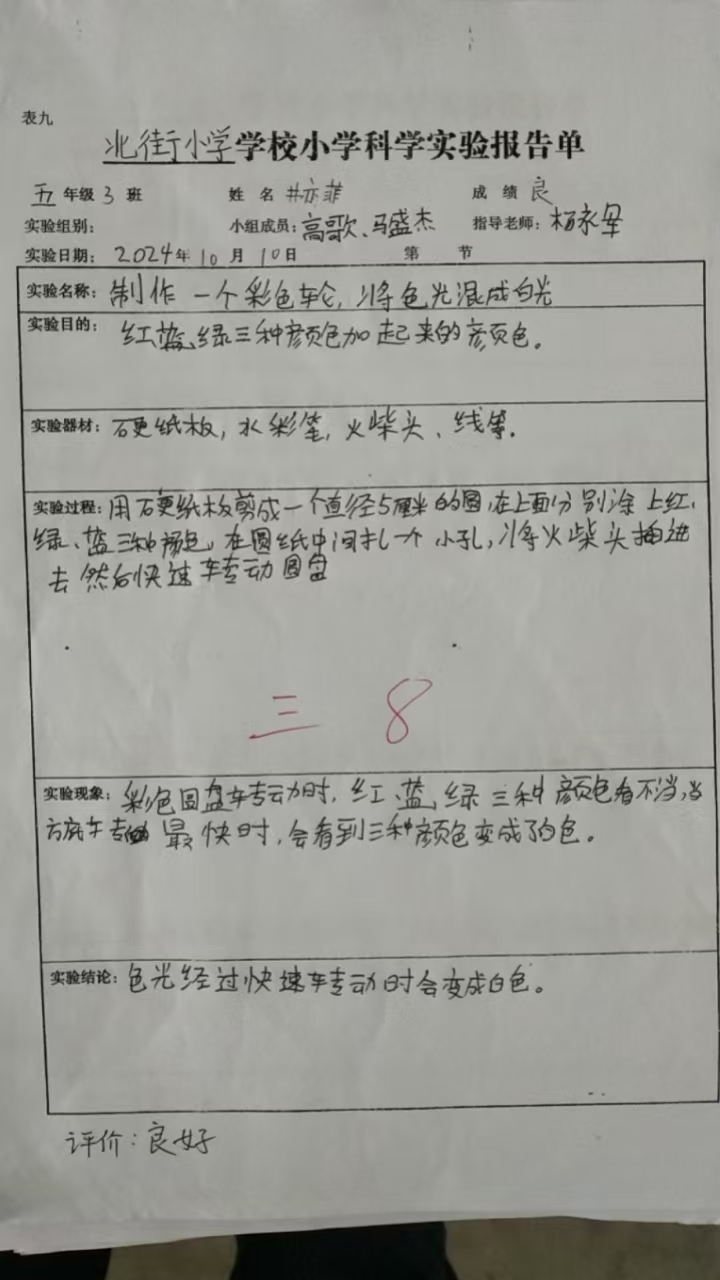 表九
北街小学学校小学科学实验报告单
五年级3班 姓名 井亦菲 成绩 良
实验组别: 小组成员:高歌、马盛杰 指导老师:杨永军
实验日期: 2024年10月10日 第 节
实验名称: 制作一个彩色车轮,将色光混成白光
实验目的: 红、蓝、绿三种颜色加起来的颜色。
实验器材: 硬纸板,水彩笔,火柴头、线等.
实验过程: 用硬纸板剪成一个直径5厘米的圆,在上面分别涂上红、
绿、蓝三种颜色,在圆纸中间扎一个小孔,将火柴头插进
去然后快速转动圆盘
三 8
实验现象: 彩色圆盘转动时,红、蓝、绿三种颜色看不清,当
转 最快时,会看到三种颜色变成了白色。
实验结论: 色光经过快速转动时会变成白色。
评价:良好